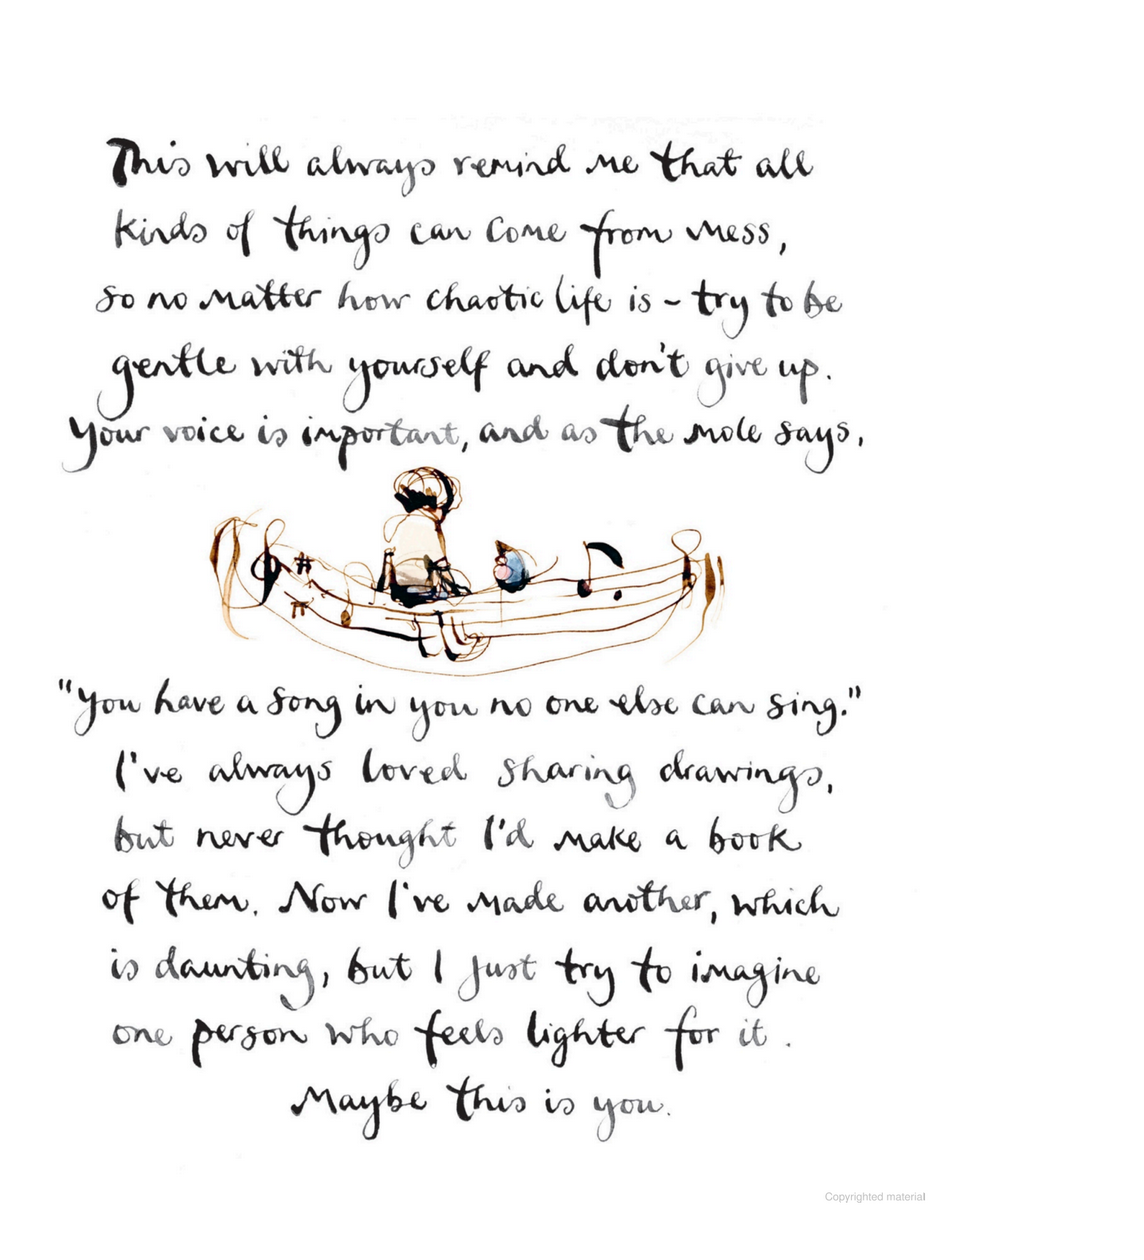 This will always remind me that all
kinds of things can come from mess,
so no matter how chaotic life is ~ try to be
gentle with yourself and don't give up.
Your voice is important, and as the mole says,
"You have a song in you no one else can sing."
I've always loved sharing drawings,
but never thought I'd make a book
of them. Now I've made another, which
is daunting, but I just try to imagine
one person who feels lighter for it.
Maybe this is you.
Copyrighted material